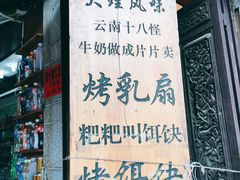 大理风味
云南十八怪
牛奶做成片片卖
烤乳扇
粑粑叫饵块
烤饵块